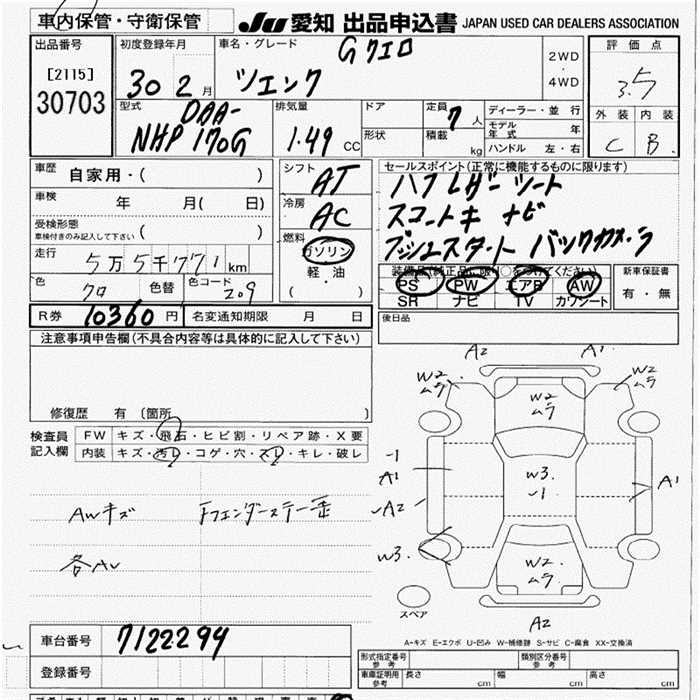 車内保管・守衛保管
JU 愛知 出品申込書 JAPAN USED CAR DEALERS ASSOCIATION
出品番号
[2115]
30703
初度登録年月
30 2 月
車名・グレード
Gクエロ
シエンタ
2WD
・
4WD
評価点
3.5
外装 内装
C B
型式
DAA-
NHP170G
排気量
1.49 CC
ドア
形状
定員 7 人
積載 kg
ディーラー・並行
モデル年式 年
ハンドル 左・右
車歴
自家用・( )
車検 年 月( 日)
受検形態
車検付きのみ記入して下さい ( )
走行
5万5千771km
色
クロ
色替
色コード
209
シフト
AT
冷房
AC
燃料
ガソリン
軽・油
( )
セールスポイント(正常に機能するものに限ります)
ハフレザーシート
スマートキ ナビ
プッシュスタート バックカメラ
装備品(純正品に限り○をつけてください)
PS PW エアB AW
SR ナビ TV カワシート
新車保証書
有・無
R券 10360円
名変通知期限 月 日
後日品
注意事項申告欄(不具合内容等は具体的に記入して下さい)
修復歴 有(箇所 )
検査員
記入欄
FW キズ・飛石・ヒビ割・リペア跡・X要
内装 キズ・汚レ・コゲ・穴・スレ・キレ・破レ
AWキズ
Fフェンダーステー歪
各AU
A2 A1
W2
ムラ
W2
ムラ
W2
ムラ
-1
A1
W3
-1
A1
A2
W3
W2
ムラ
スペア
A2
A-キズ E-エクボ U-凹み W-補修跡 S-サビ C-腐食 XX-交換済
車台番号 7122294
登録番号
形式指定番号
参考
類別区分番号
参考
車庫証明用
参考
長さ cm 幅 cm 高さ cm